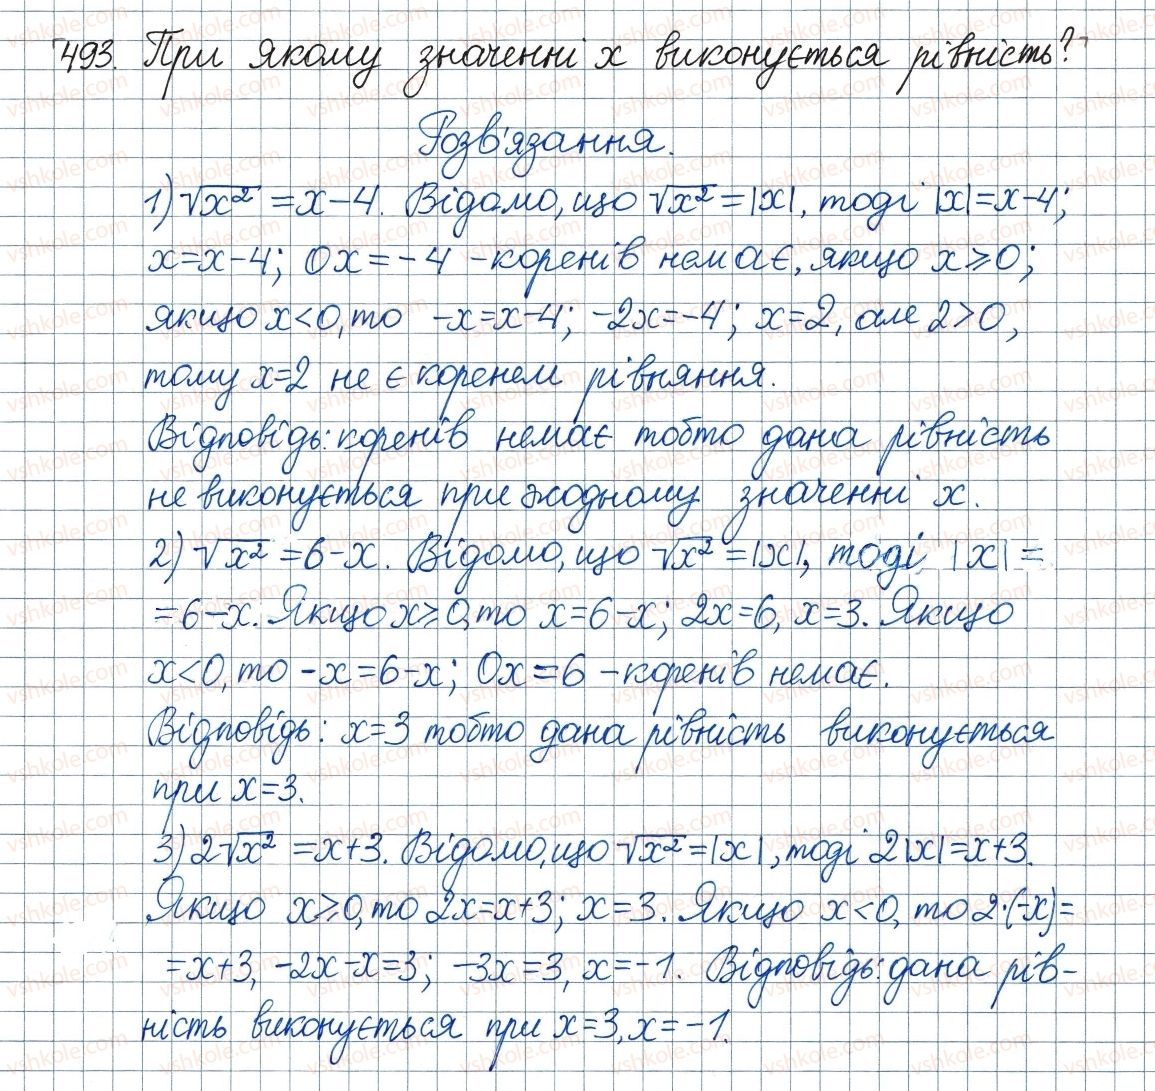 493. При якому значенні x виконується рівність?
Розв'язання.
1) √x² = x-4. Відомо, що √x² = |x|, тоді |x|=x-4;
x=x-4; 0x=-4 - коренів немає, якщо x≥0;
якщо x<0, то -x=x-4; -2x=-4; x=2, але 2>0,
тому x=2 не є коренем рівняння.
Відповідь: коренів немає тобто дана рівність
не виконується при жодному значенні x.
2) √x² = 6-x. Відомо, що √x² = |x|, тоді |x| =
= 6-x. Якщо x≥0, то x=6-x; 2x=6, x=3. Якщо
x<0, то -x=6-x; 0x=6 - коренів немає.
Відповідь: x=3 тобто дана рівність виконується
при x=3.
3) 2√x² = x+3. Відомо, що √x² = |x|, тоді 2|x|=x+3.
Якщо x≥0, то 2x=x+3; x=3. Якщо x<0, то 2·(-x)=
=x+3, -2x-x=3; -3x=3, x=-1. Відповідь: дана рів-
ність виконується при x=3, x=-1.